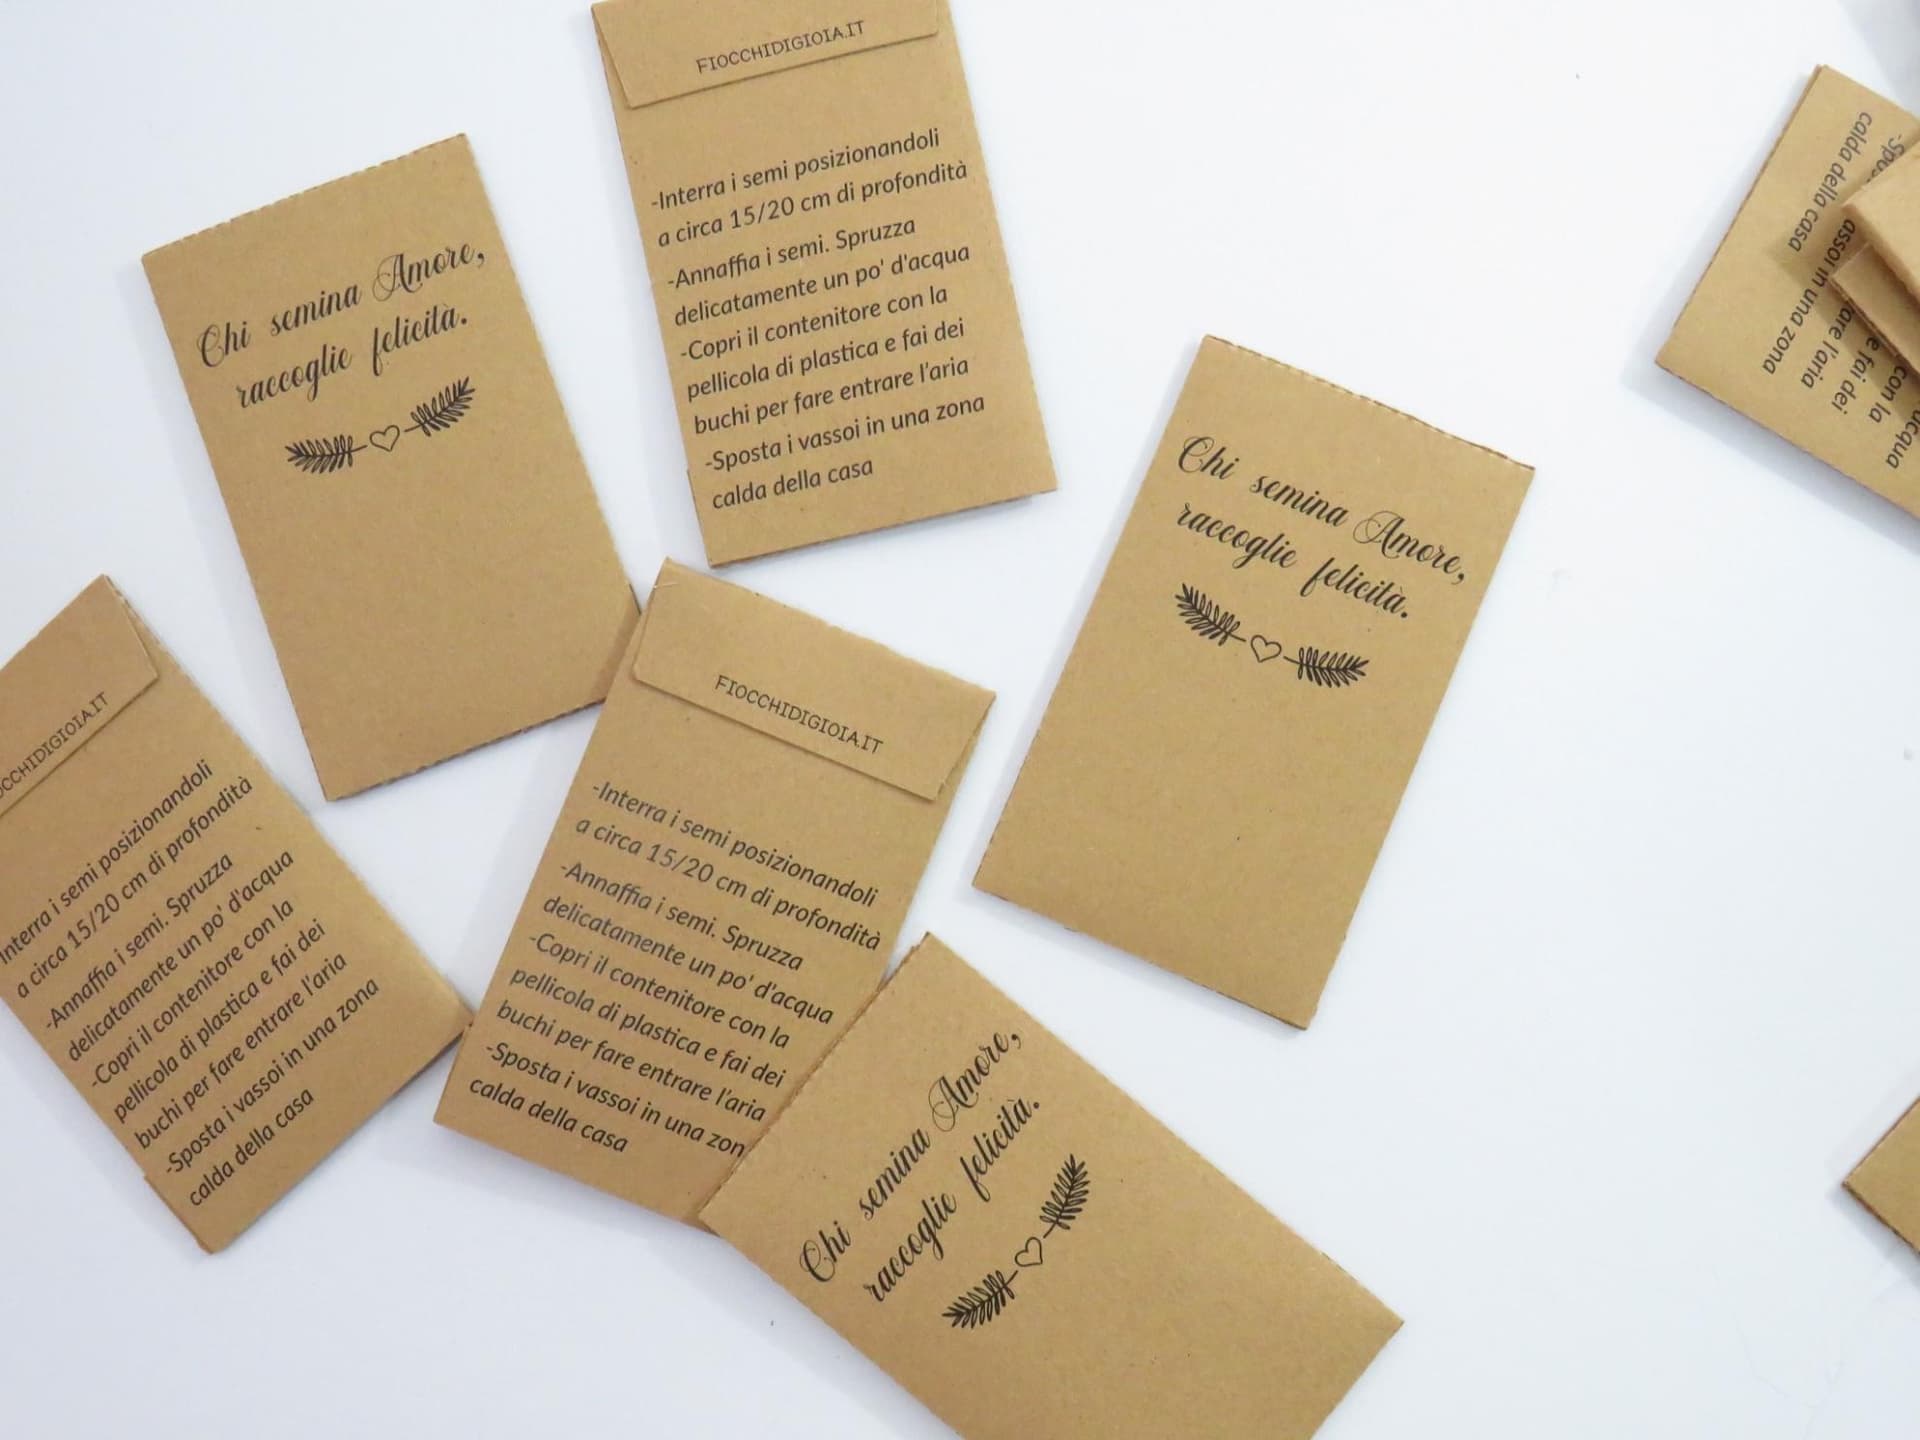 FIOCCHIDIGIOIA.IT
-Interra i semi posizionandoli
a circa 15/20 cm di profondità
-Annaffia i semi. Spruzza
delicatamente un po' d'acqua
-Copri il contenitore con la
pellicola di plastica e fai dei
buchi per fare entrare l'aria
-Sposta i vassoi in una zona
calda della casa
Chi semina Amore,
raccoglie felicità.
Chi semina Amore,
raccoglie felicità.
Interra i semi posizionandoli
a circa 15/20 cm di profondità
-Annaffia i semi. Spruzza
delicatamente un po' d'acqua
-Copri il contenitore con la
pellicola di plastica e fai dei
buchi per fare entrare l'aria
-Sposta i vassoi in una zona
calda della casa
FIOCCHIDIGIOIA.IT
-Interra i semi posizionandoli
a circa 15/20 cm di profondità
-Annaffia i semi. Spruzza
delicatamente un po' d'acqua
-Copri il contenitore con la
pellicola di plastica e fai dei
buchi per fare entrare l'aria
-Sposta i vassoi in una zon
calda della casa
Chi semina Amore,
raccoglie felicità.
con la
e fai dei
l'aria
in una zona
calda della casa